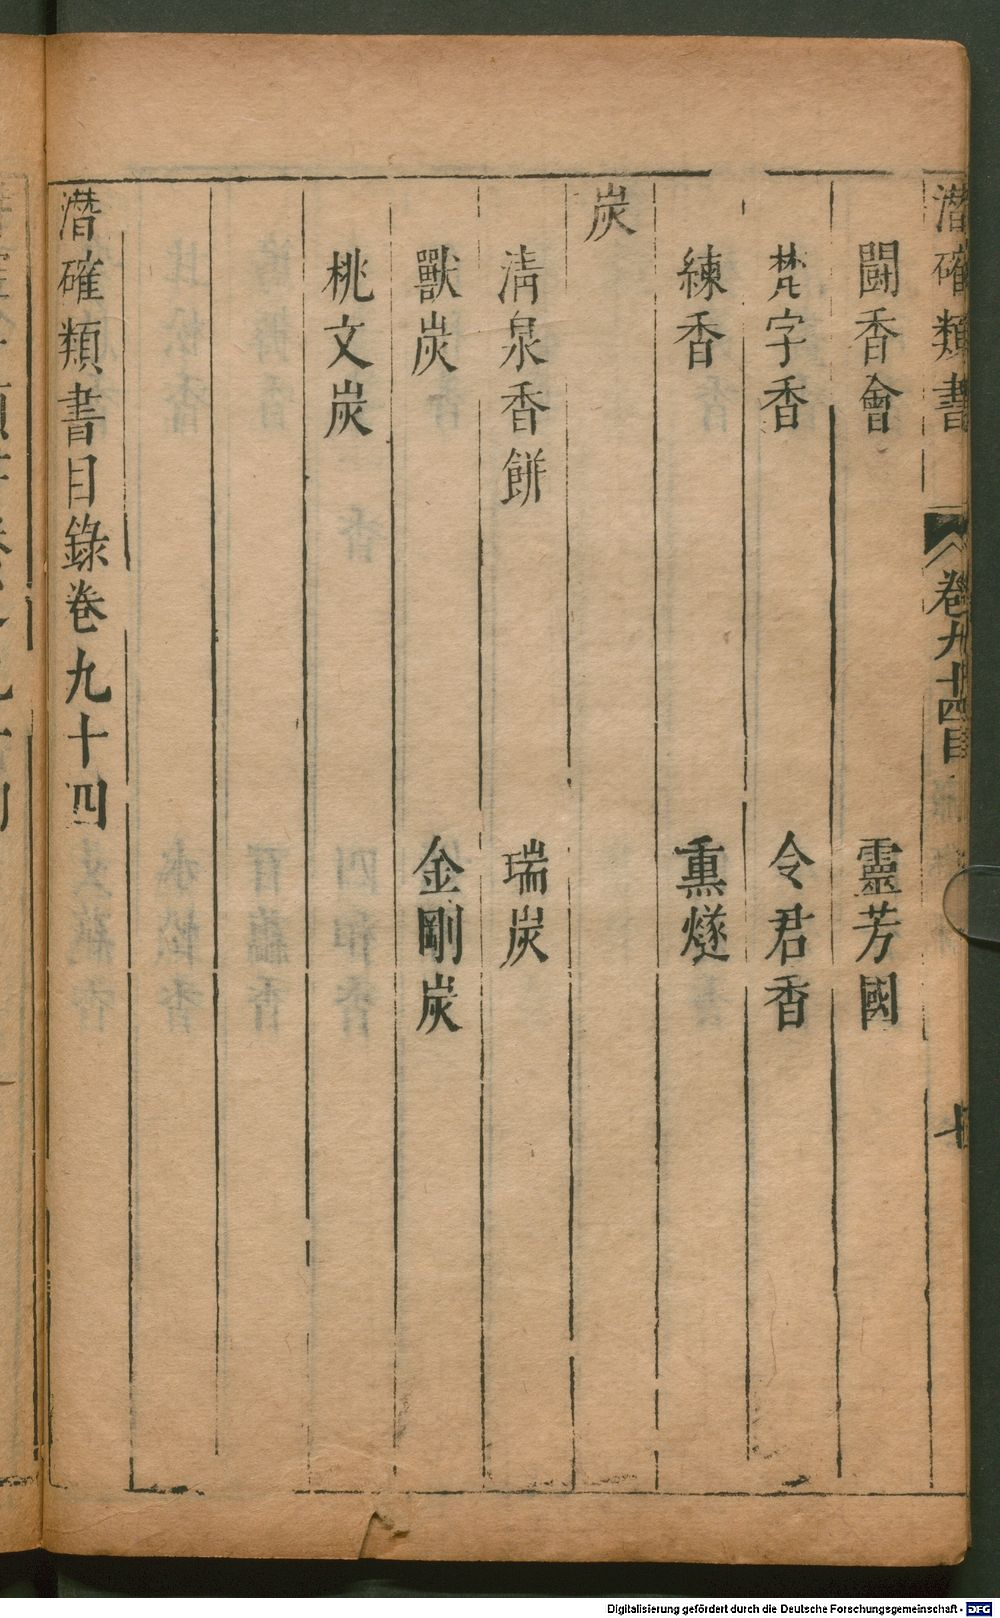 潛確類書
卷九十四目
七
鬪香會　靈芳國
梵字香　令君香
練香　熏燧
炭
清泉香餅　瑞炭
獸炭　金剛炭
桃文炭
潛確類書目錄卷九十四
Digitalisierung gefördert durch die Deutsche Forschungsgemeinschaft - DFG